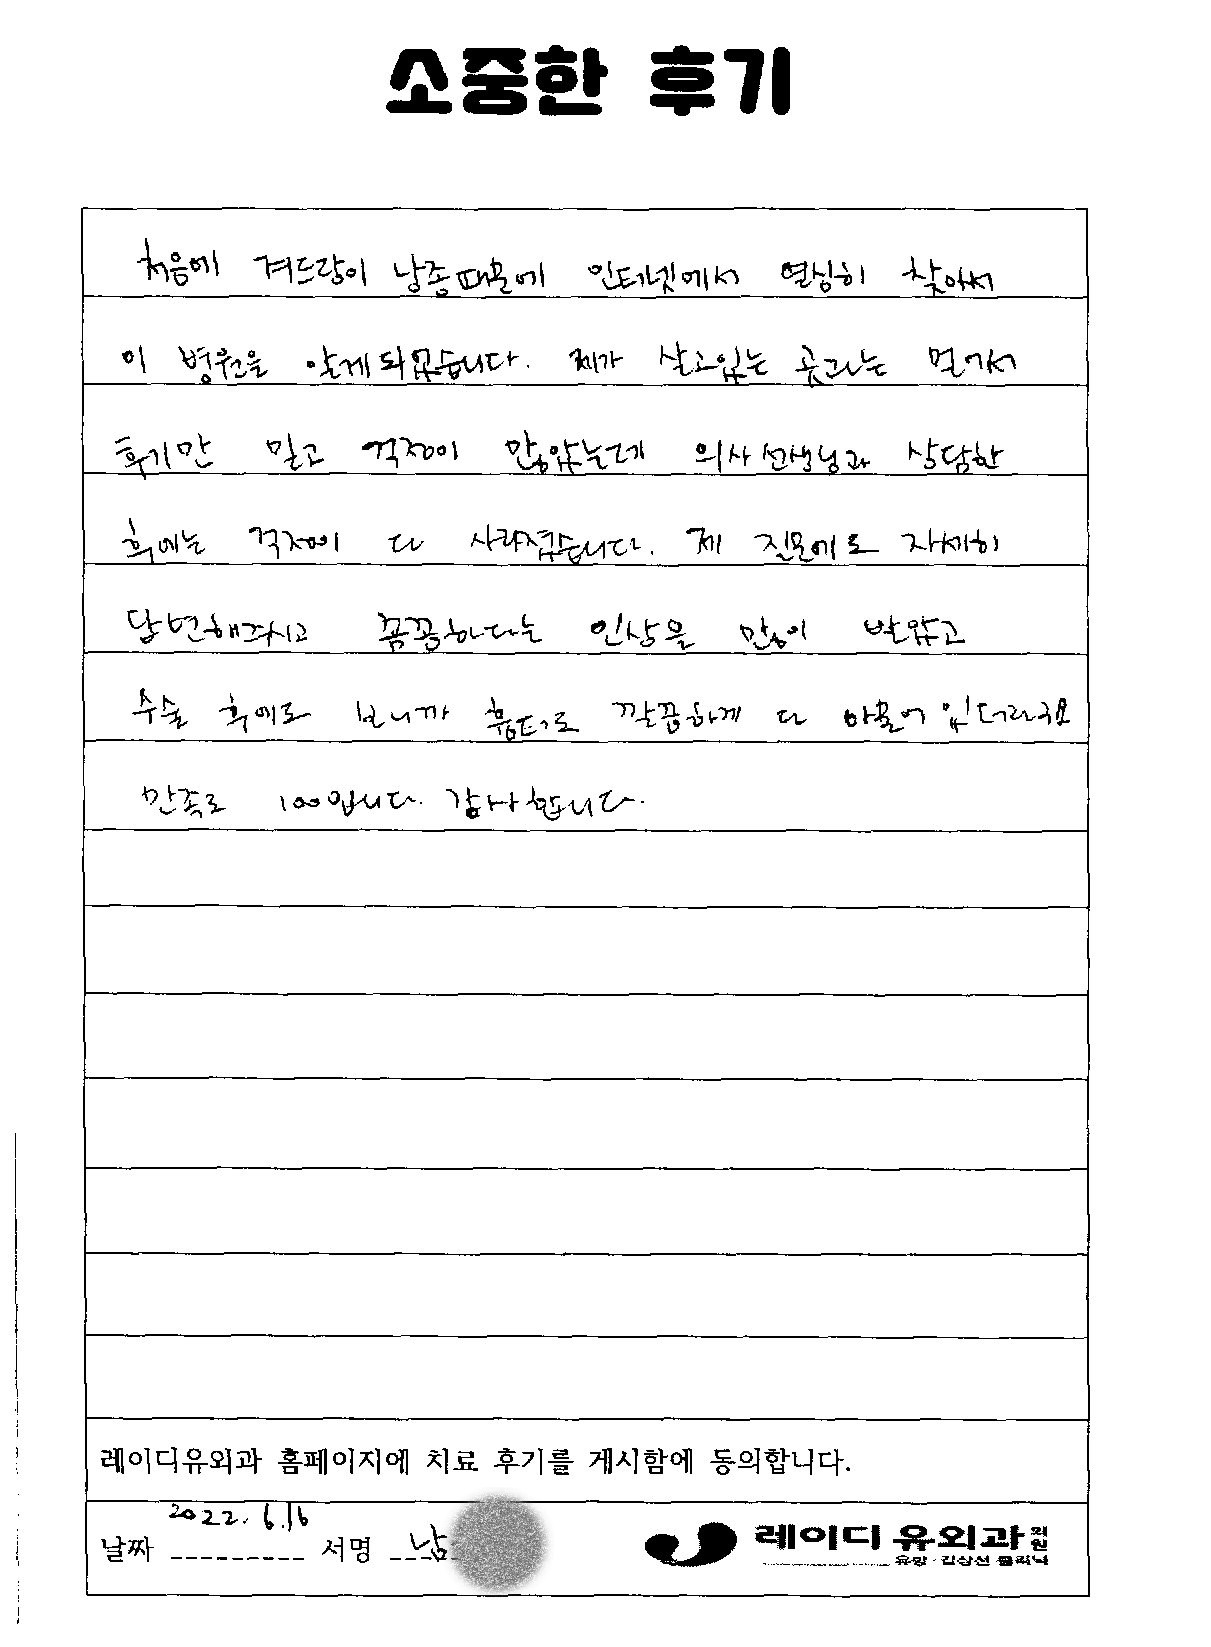 소중한 후기
처음에 겨드랑이 낭종때문에 인터넷에서 열심히 찾아서
이 병원을 알게되었습니다. 제가 살고있는 곳과는 멀어서
후기만 믿고 걱정이 많았는데 의사선생님과 상담한
후에는 걱정이 다 사라졌습니다. 제 질문에도 자세히
답변해주시고 꼼꼼하다는 인상을 많이 받았고
수술 후에도 보니까 흉터도 깔끔하게 다 아물어있더라구요
만족도 100입니다. 감사합니다.
레이디유외과 홈페이지에 치료 후기를 게시함에 동의합니다.
날짜 2022. 6.16 서명 남
레이디유외과의원
유방·갑상선 클리닉